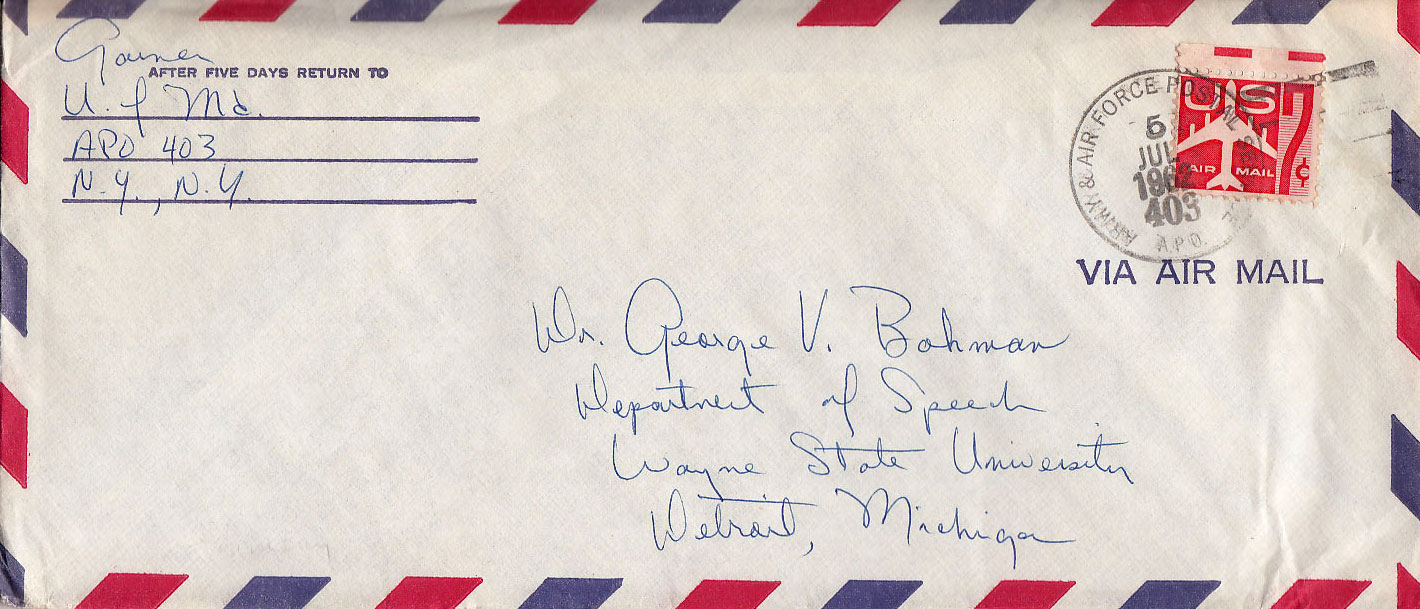 AFTER FIVE DAYS RETURN TO
U. of Md.
APO 403
N.Y., N.Y.
ARMY & AIR FORCE POSTAL
5
JUL
1962
403
A.P.O.
US
AIR MAIL 7¢
VIA AIR MAIL
Dr. George V. Bohman
Department of Speech
Wayne State University
Detroit, Michigan